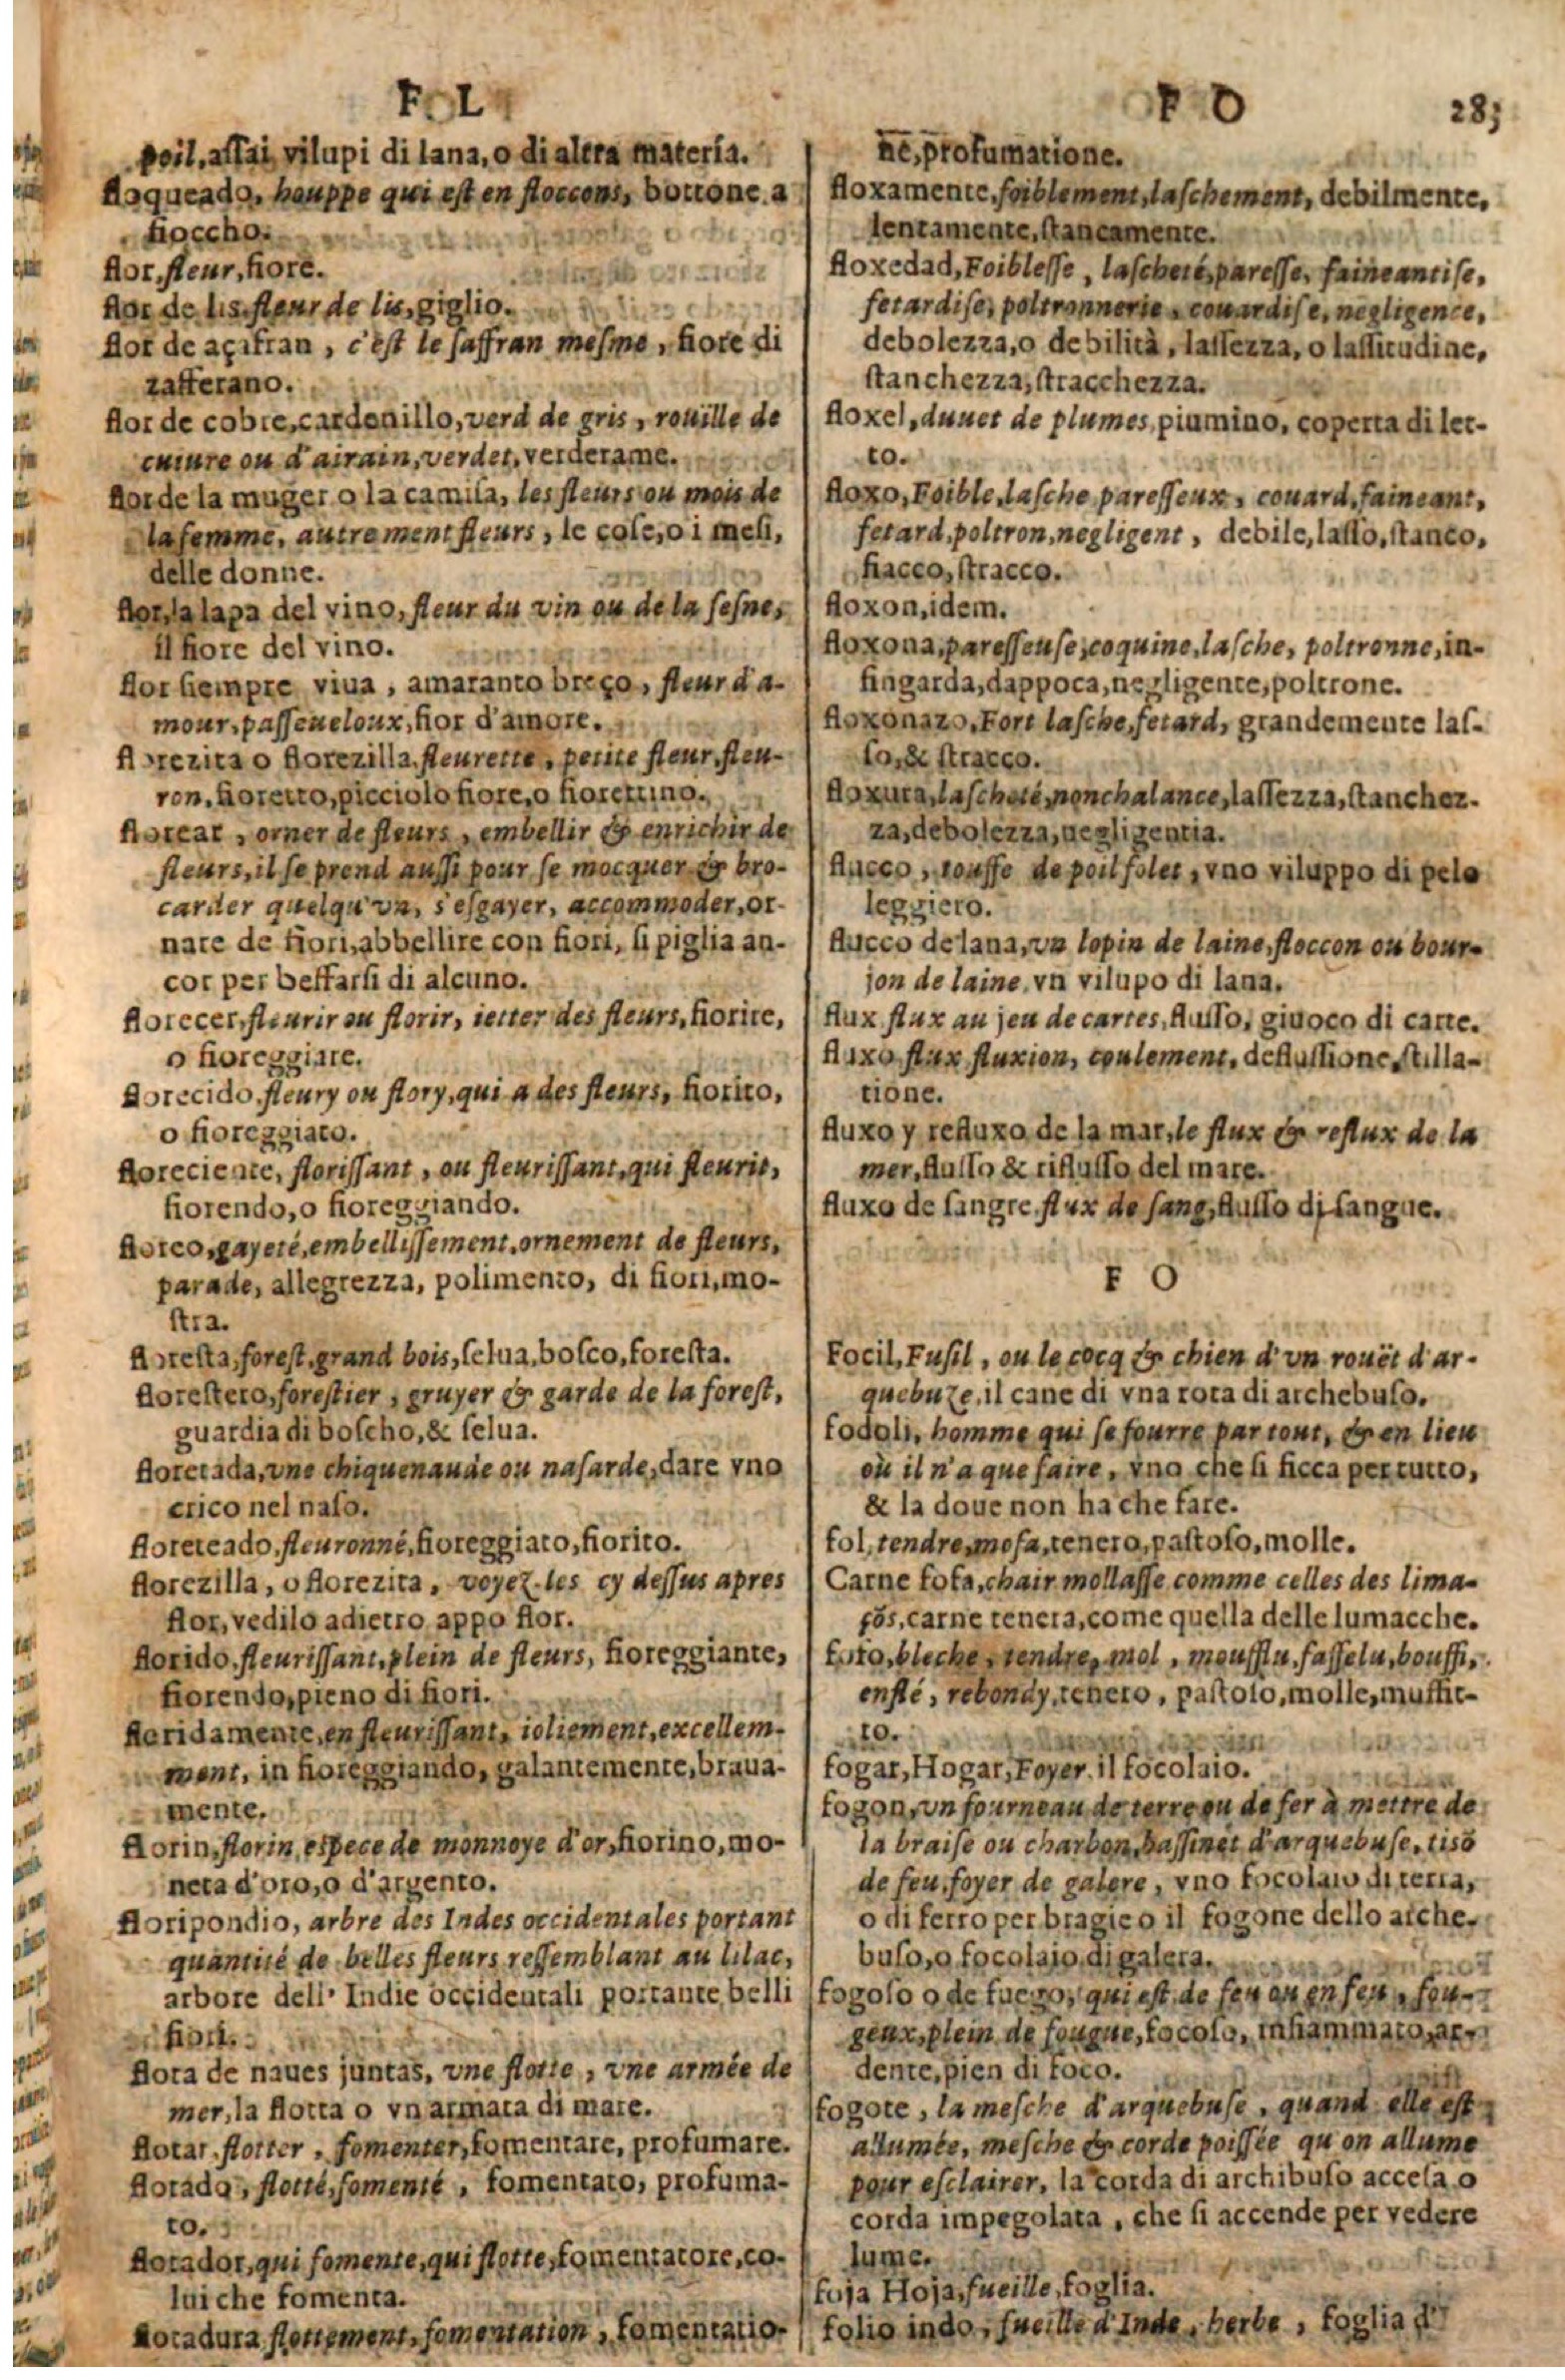 F L
poil, assai vilupi di lana, o di altra matería.
floqueado, houppe qui est en floccons, bottone a
fioccho.
flor, fleur, fiore.
flor de lis. fleur de lis, giglio.
flor de açafran, c'est le saffran mesme, fiore di
zafferano.
flor de cobre, cardenillo, verd de gris, rouille de
cuivre ou d'airain, verdet, verderame.
flor de la muger o la camisa, les fleurs ou mois de
la femme, autrement fleurs, le cose, o i mesi,
delle donne.
flor, la lapa del vino, fleur du vin ou de la sesne,
il fiore del vino.
flor siempre viua, amaranto breço, fleur d'a-
mour, passeueloux, fior d'amore.
florezita o florezilla, fleurette, petite fleur, fleu-
ron, fioretto, picciolo fiore, o fiorettino.
florear, orner de fleurs, embellir & enrichir de
fleurs, il se prend aussi pour se mocquer & bro-
carder quelqu'vn, s'esgayer, accommoder, or-
nare de fiori, abbellire con fiori, si piglia an-
cor per beffarsi di alcuno.
florecer, fleurir ou florir, ietter des fleurs, fiorire,
o fioreggiare.
florecido, fleury ou flory, qui a des fleurs, fiorito,
o fioreggiato.
floreciente, florissant, ou fleurissant, qui fleurit,
fiorendo, o fioreggiando.
floreo, gayeté, embellissement, ornement de fleurs,
parade, allegrezza, polimento, di fiori, mo-
stra.
floresta, forest, grand bois, selua, bosco, foresta.
florestero, forestier, gruyer & garde de la forest,
guardia di boscho, & selua.
floretada, vne chiquenaude ou nasarde, dare vno
crico nel naso.
floreteado, fleuronné, fioreggiato, fiorito.
florezilla, o florezita, voyez-les cy dessus apres
flor, vedilo adietro appo flor.
florido, fleurissant, plein de fleurs, fioreggiante,
fiorendo, pieno di fiori.
floridamente, en fleurissant, ioliement, excellem-
ment, in fioreggiando, galantemente, braua-
mente.
florin, florin, espece de monnoye d'or, fiorino, mo-
neta d'oro, o d'argento.
floripondio, arbre des Indes occidentales portant
quantité de belles fleurs ressemblant au lilac,
arbore dell' Indie occidentali portante belli
fiori.
flota de naues juntas, vne flotte, vne armée de
mer, la flotta o vn armata di mare.
flotar, flotter, fomenter, fomentare, profumare.
flotado, flotté, fomenté, fomentato, profuma-
to.
flotador, qui fomente, qui flotte, fomentatore, co-
lui che fomenta.
flotadura flottement, fomentation, fomentatio-
F O 283
ne, profumatione.
floxamente, foiblement, laschement, debilmente,
lentamente, stancamente.
floxedad, Foiblesse, lascheté, paresse, faineantise,
fetardise, poltronnerie, couardise, negligence,
debolezza, o debilità, lassezza, o lassitudine,
stanchezza, stracchezza.
floxel, duuet de plumes, piumino, coperta di let-
to.
floxo, Foible, lasche paresseux, couard, faineant,
fetard, poltron, negligent, debile, lasso, stanco,
fiacco, stracco.
floxon, idem.
floxona, paresseuse, coquine, lasche, poltronne, in-
fingarda, dappoca, negligente, poltrone.
floxonazo, Fort lasche, fetard, grandemente las-
so, & stracco.
floxura, lascheté, nonchalance, lassezza, stanchez-
za, debolezza, negligentia.
flucco, touffe de poil folet, vno viluppo di pelo
leggiero.
flucco de lana, vn lopin de laine, floccon ou bour-
jon de laine, vn vilupo di lana.
flux flux au jeu de cartes, flusso, giuoco di carte.
fluxo flux fluxion, coulement, deflussione, stilla-
tione.
fluxo y refluxo de la mar, le flux & reflux de la
mer, flusso & riflusso del mare.
fluxo de sangre, flux de sang, flusso di sangue.
F O
Focil, Fusil, ou le cocq & chien d'vn rouët d'ar-
quebuze, il cane di vna rota di archebuso.
fodoli, homme qui se fourre par tout, & en lieu
où il n'a que faire, vno che si ficca per tutto,
& la doue non ha che fare.
fol, tendre, mosa, tenero, pastoso, molle.
Carne fofa, chair mollasse comme celles des lima-
çõs, carne tenera, come quella delle lumacche.
fofo, bleche, tendre, mol, moufflu, fasselu, bouffi,
enflé, rebondy, tenero, pastoso, molle, muffit-
to.
fogar, Hogar, Foyer, il focolaio.
fogon, vn fourneau de terre ou de fer à mettre de
la braise ou charbon, bassinet d'arquebuse, tisõ
de feu, foyer de galere, vno focolaio di terra,
o di ferro per bragie o il fogone dello arche-
buso, o focolaio di galera.
fogoso o de fuego, qui est de feu ou en feu, fou-
geux, plein de fougue, focoso, infiammato, ar-
dente, pien di foco.
fogote, la mesche d'arquebuse, quand elle est
allumée, mesche & corde poissée qu'on allume
pour esclairer, la corda di archibuso accesa o
corda impegolata, che si accende per vedere
lume.
foja Hoja, fueille, foglia.
folio indo, fueille d'Inde, herbe, foglia d'